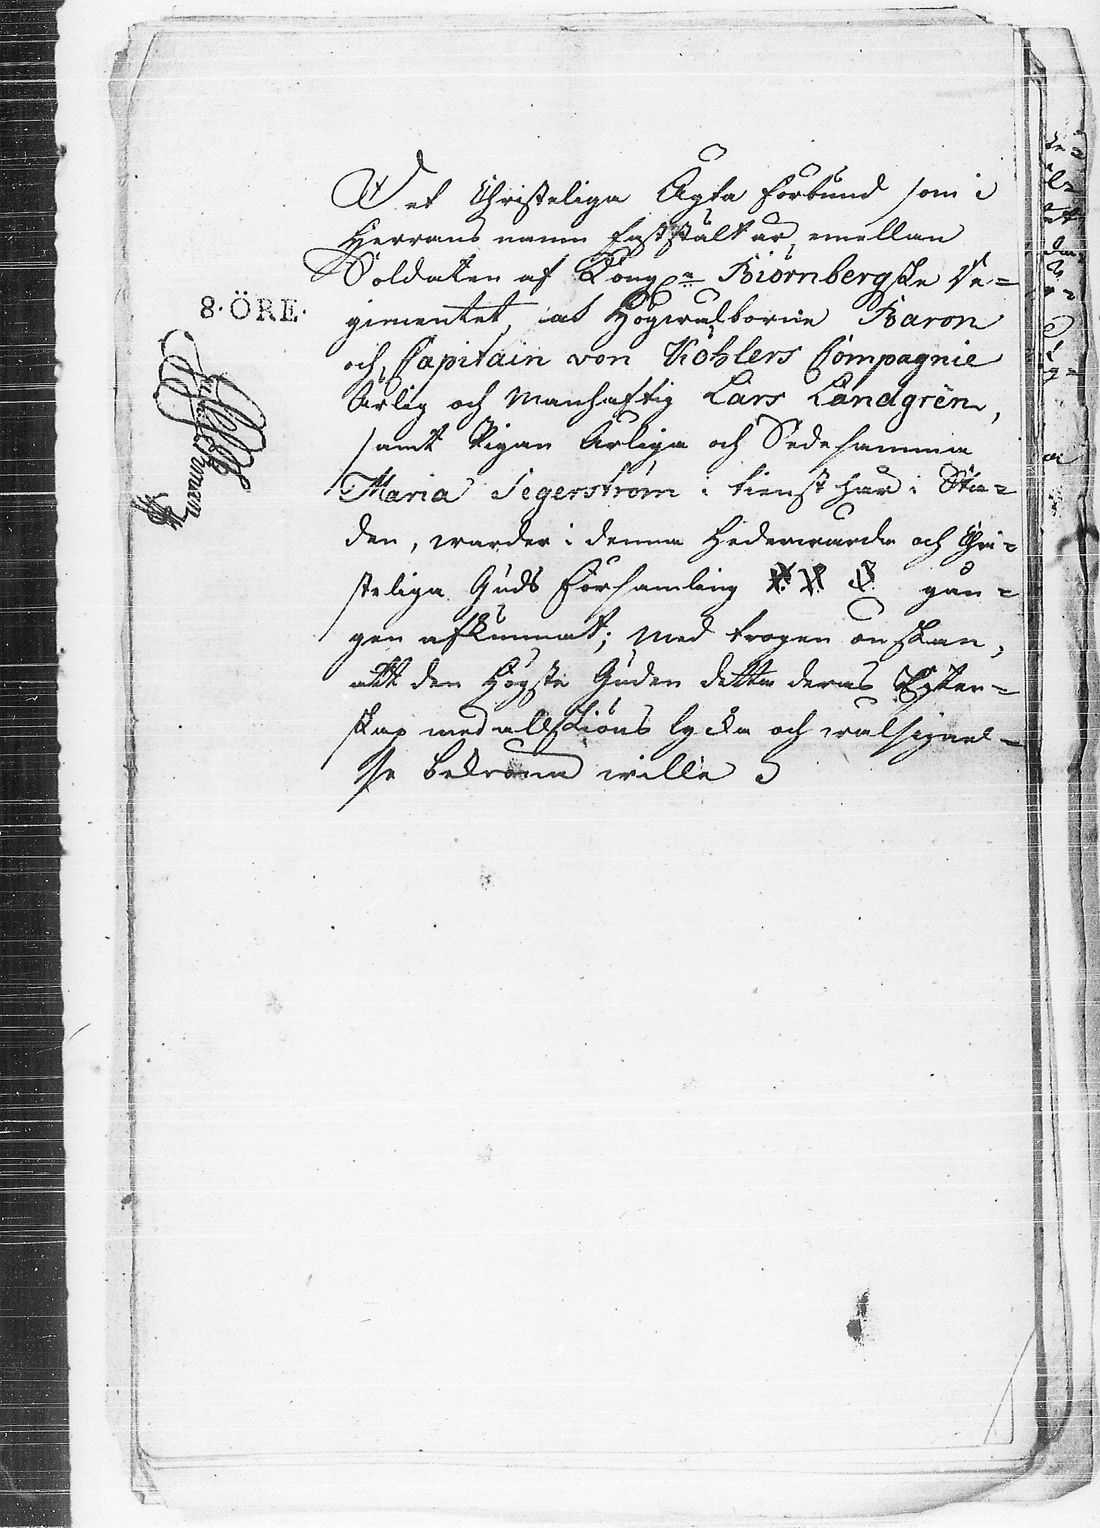 Det Christeliga Ägta förbund som i
Herrans namn faststält är, emellan
Soldaten af Kongl. Biörnbergske Re=
8·ÖRE·
gimentet, af Högwälborne Baron
och Capitain von Köhlers Compagnie
Ärlig och Manhaftig Lars Landgrén,
samt Pigan Ärliga och Sedesamma
Maria Segerström i tienst här i Sta=
den, warder i denna Hederwärda och Chri=
steliga Guds Församling gån=
gen afkunnat; med trogen önskan,
att den Högste Guden detta deras Ägten=
skap med allskiöns lycka och wälsignel=
se bekröna wille